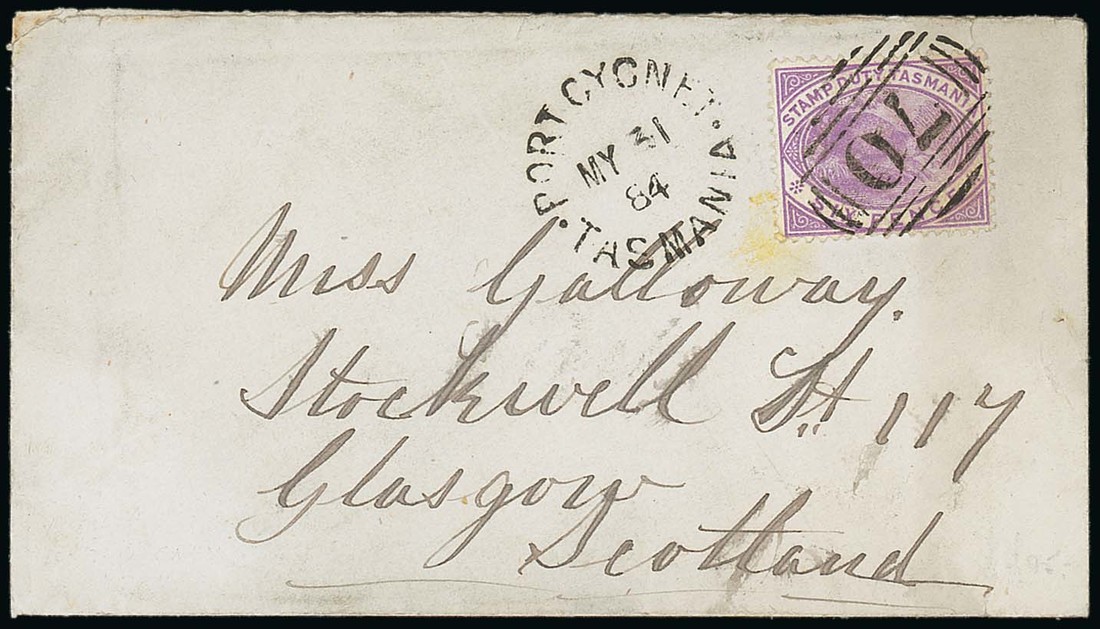 PORT CYGNET
MY 31
84
TASMANIA
STAMP DUTY, TASMANI
SIXPENCE
70
Miss Galloway.
Stockwell St 117
Glasgow
Scotland